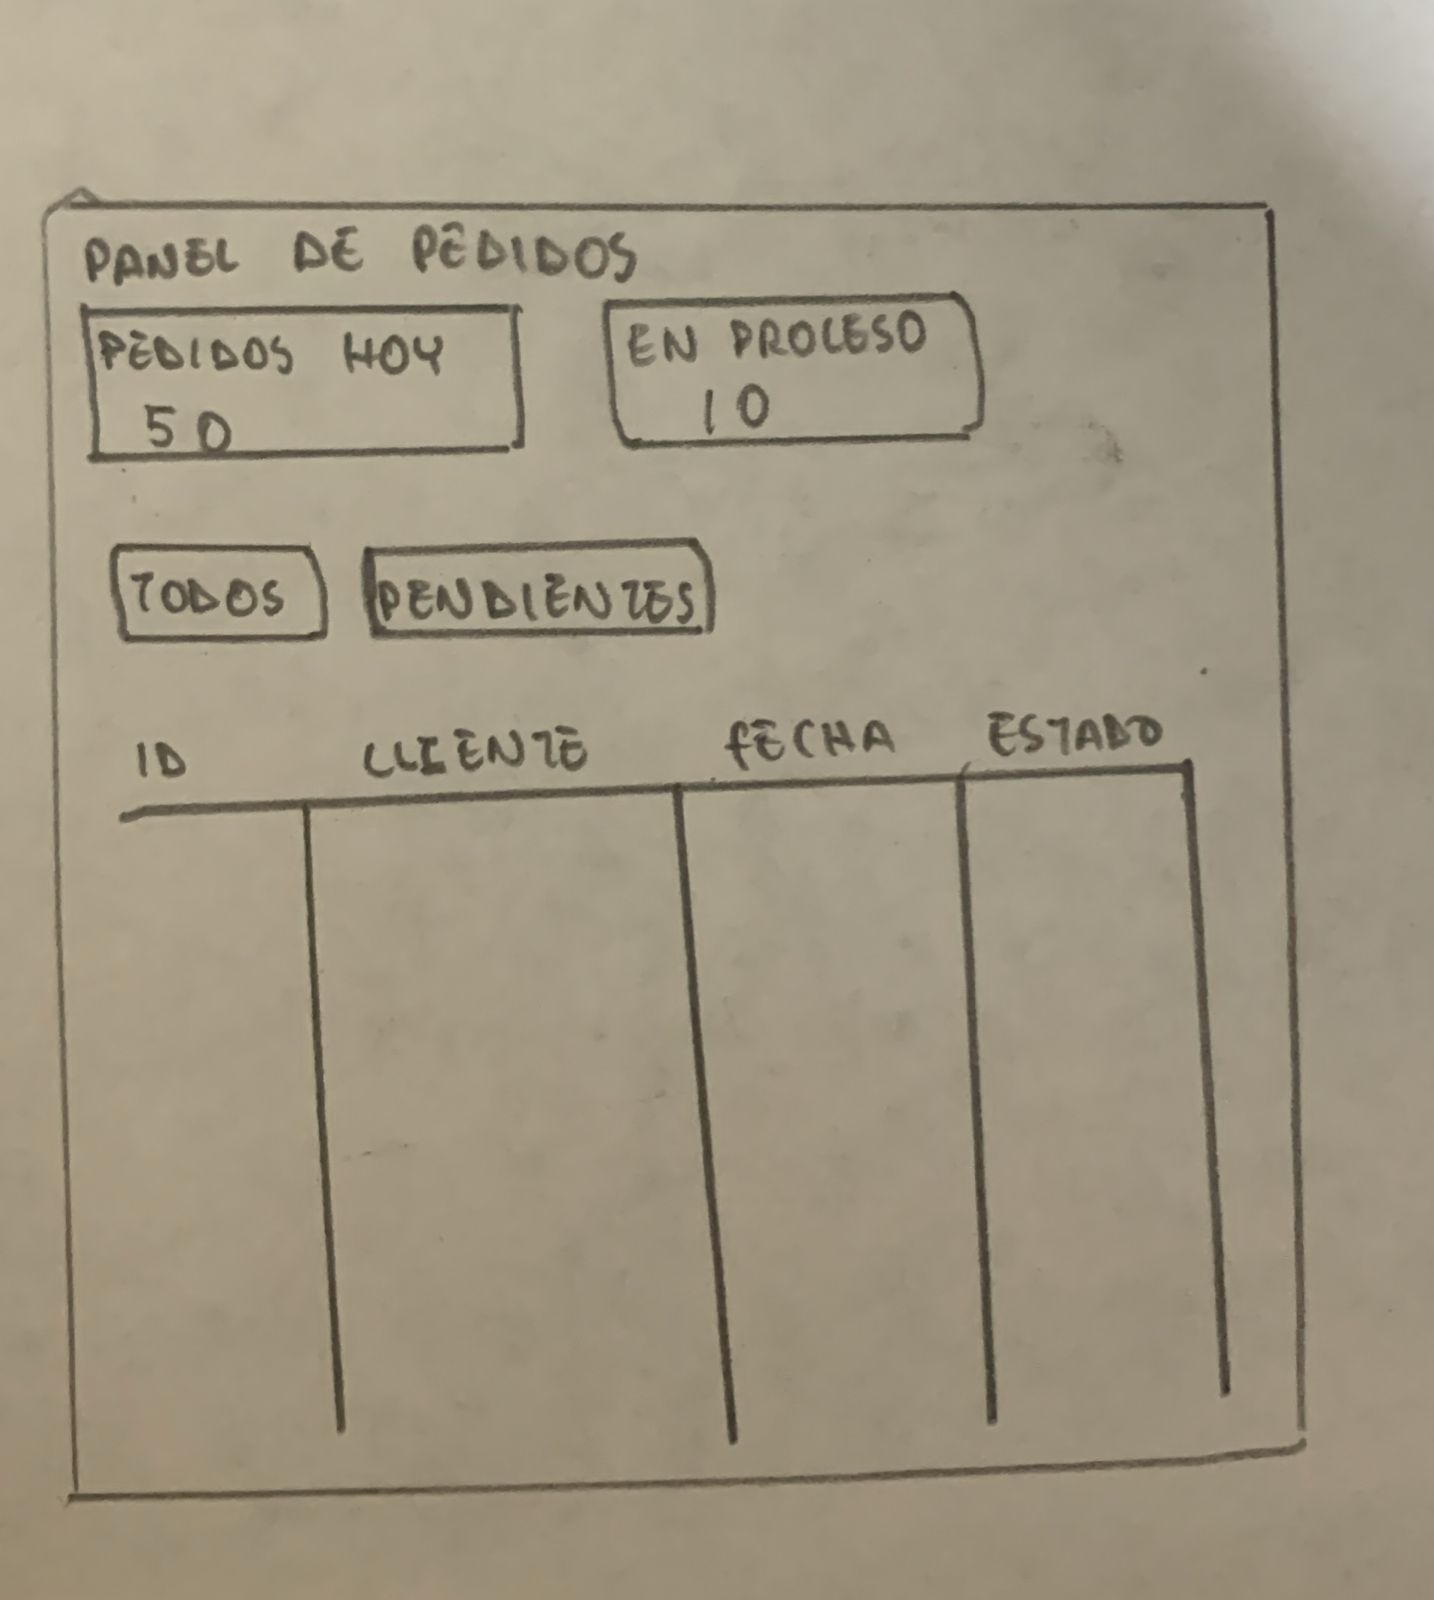 PANEL DE PEDIDOS
PEDIDOS HOY
50
EN PROCESO
10
TODOS PENDIENTES
ID CLIENTE FECHA ESTADO